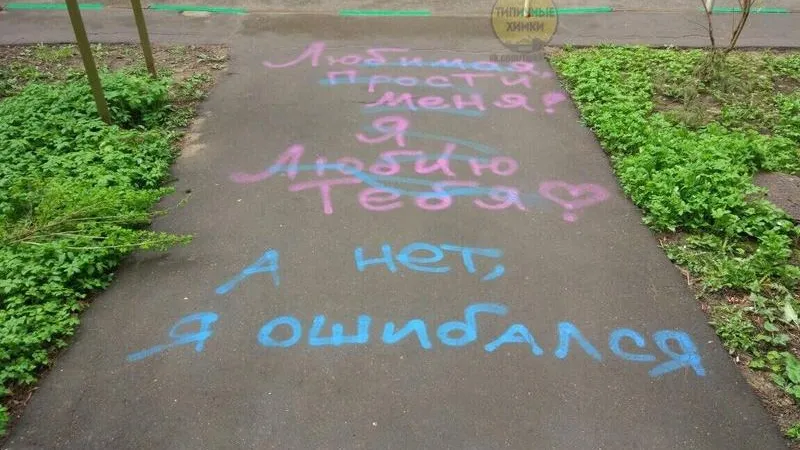 ТИПИЧНЫЕ
ХИМКИ
Любимая,
Прости
меня!
Я
Люблю
Тебя
А нет,
я ошибался